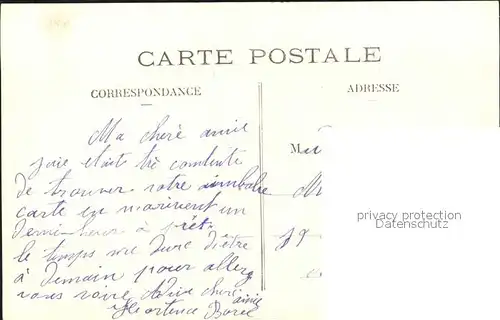 CARTE POSTALE
CORRESPONDANCE
ADRESSE
Ma cherè amie
jaie etaite trè contente
de trouver votre aimbalre
carte en narivent un
demi heur à prêt
le temps me dure d'être
à demain pour allerg
vous voire Adieu cherè
amie
Hortence Borel
M
privacy protection
Datenschutz
19